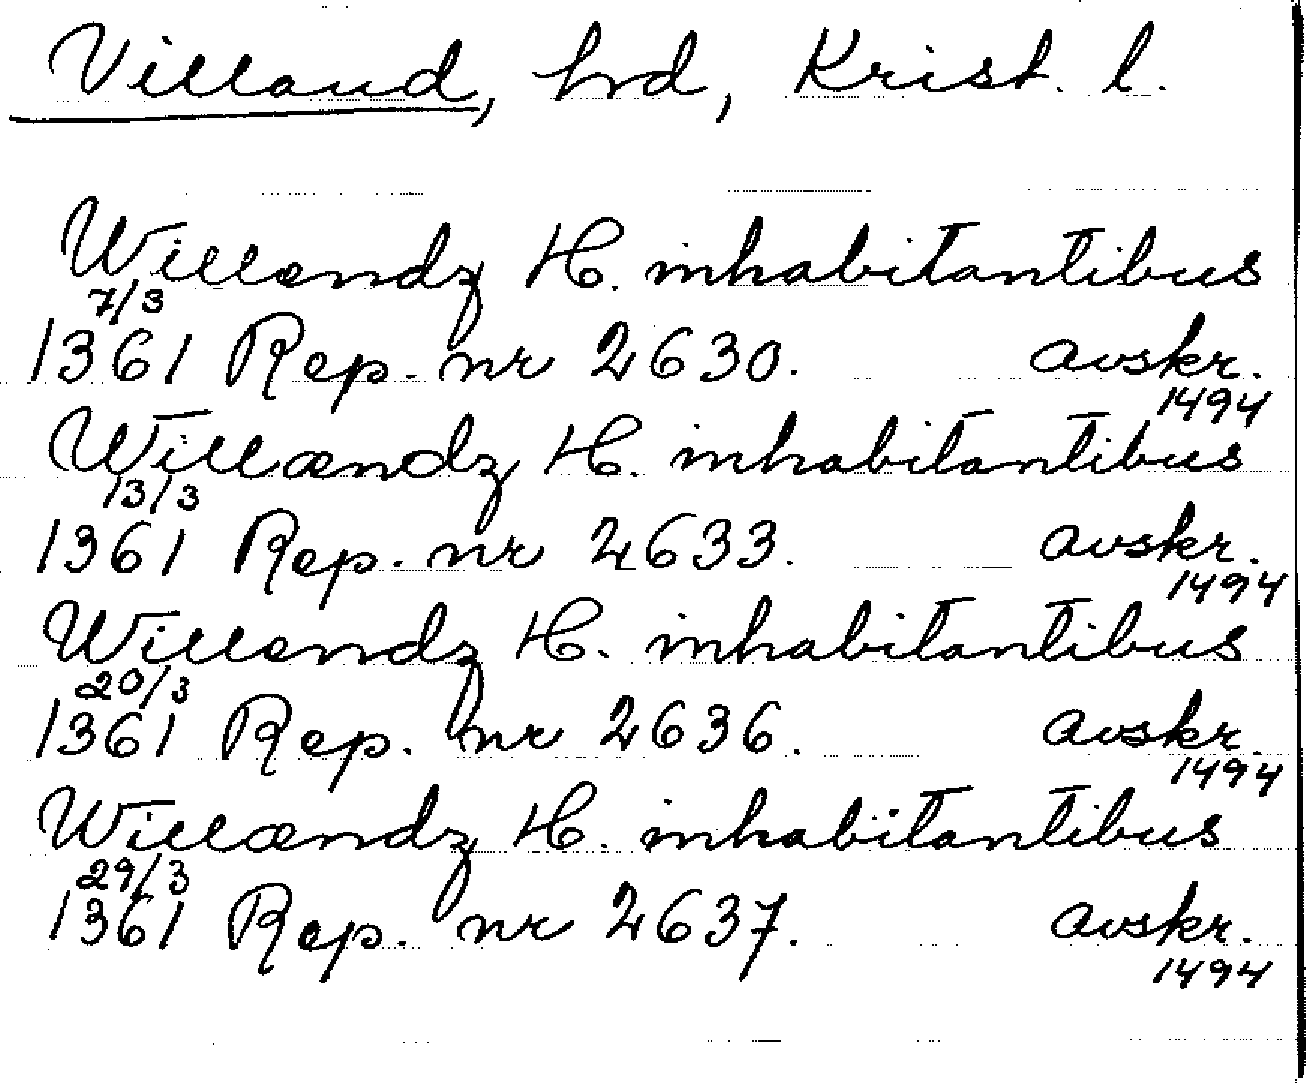 Villand, hrd, Krist. l.
Willendz H. inhabitantibus
7/3
1361 Rep. nr 2630. avskr.
1494
Willændz H. inhabitantibus
13/3
1361 Rep. nr 2633. avskr.
1494
Willendz H. inhabitantibus
20/3
1361 Rep. nr 2636. avskr.
1494
Willændz H. inhabitantibus
29/3
1361 Rep. nr 2637. avskr.
1494